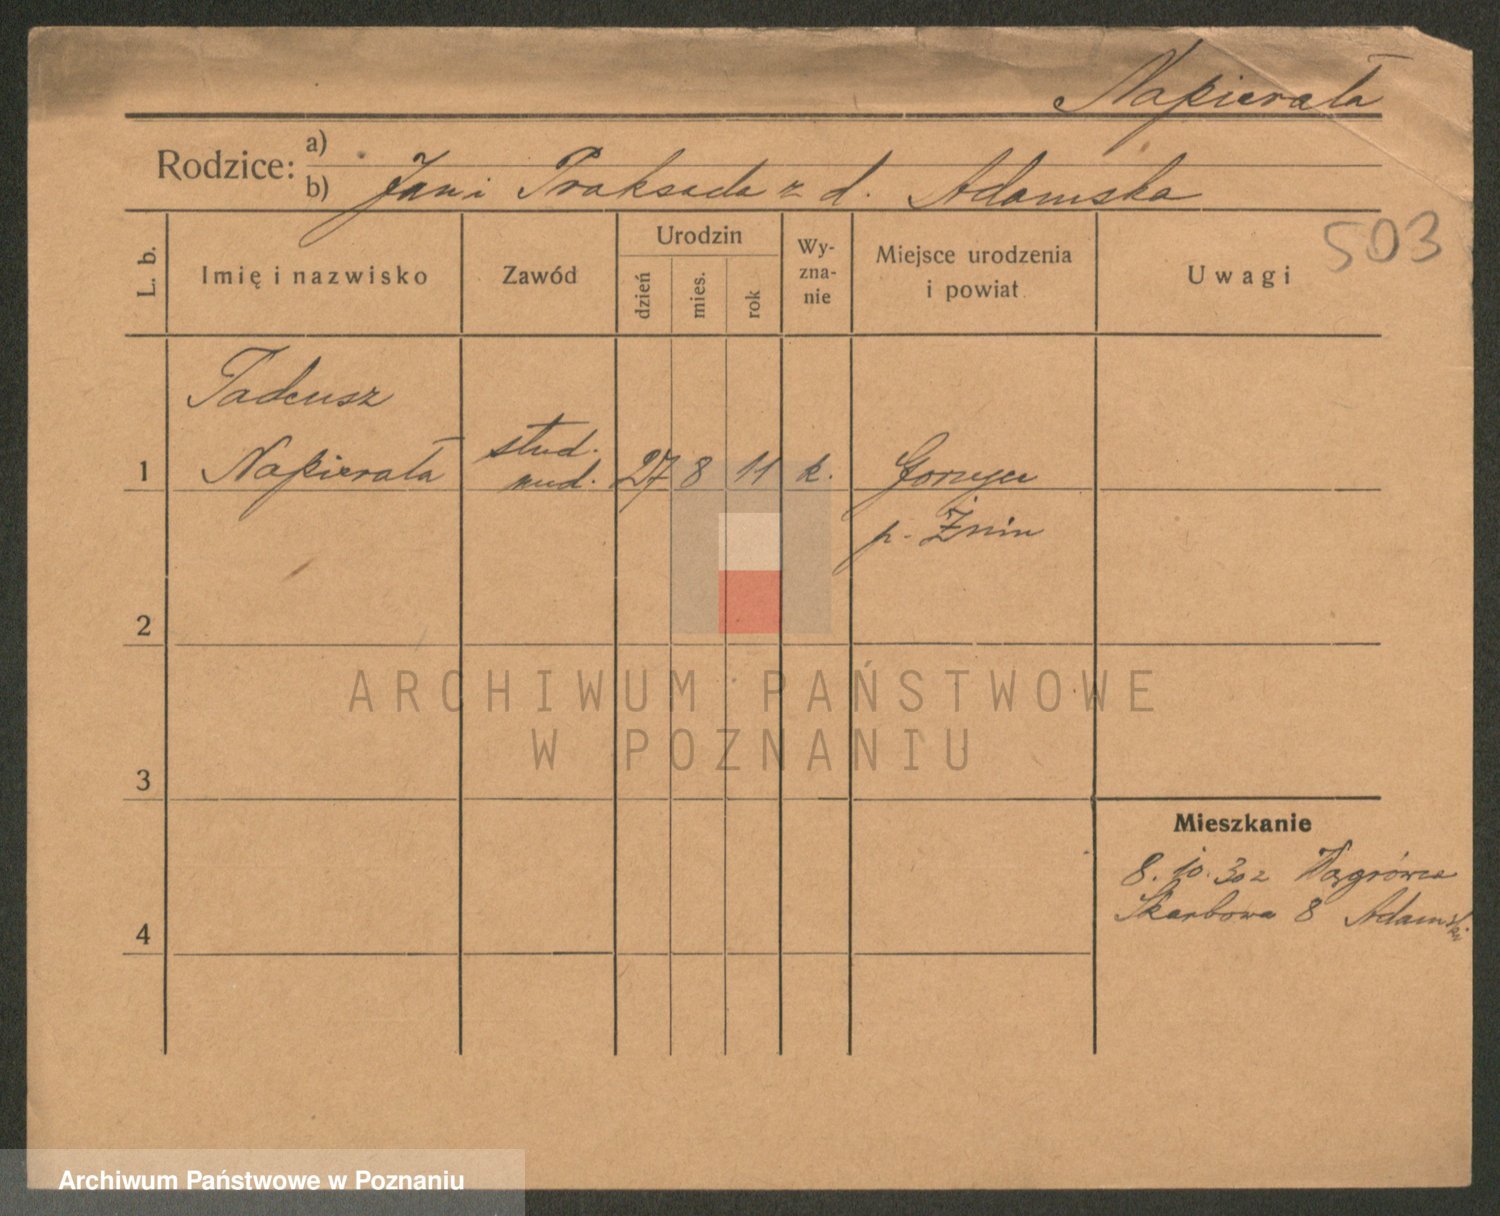 Napierała
Rodzice: a)
b) Jan i Praksada z d. Adamska
503
L. b.
Imię i nazwisko
Zawód
Urodzin
dzień
mies.
rok
Wy-
zna-
nie
Miejsce urodzenia
i powiat
Uwagi
Tadeusz
1 Napierała
stud.
med.
27 8 11 k.
Gorzyce
p. Żnin
2
3
4
ARCHIWUM PAŃSTWOWE
W POZNANIU
Mieszkanie
8.10.30 z Wągrówca
Skarbowa 8 Adamski
Archiwum Państwowe w Poznaniu